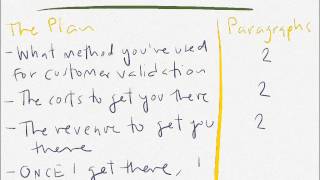 The Plan
Paragraphs
- What method you've used
for customer validation
2
- The costs to get you there
2
- The revenue to get you
there
2
- ONCE I get there, I